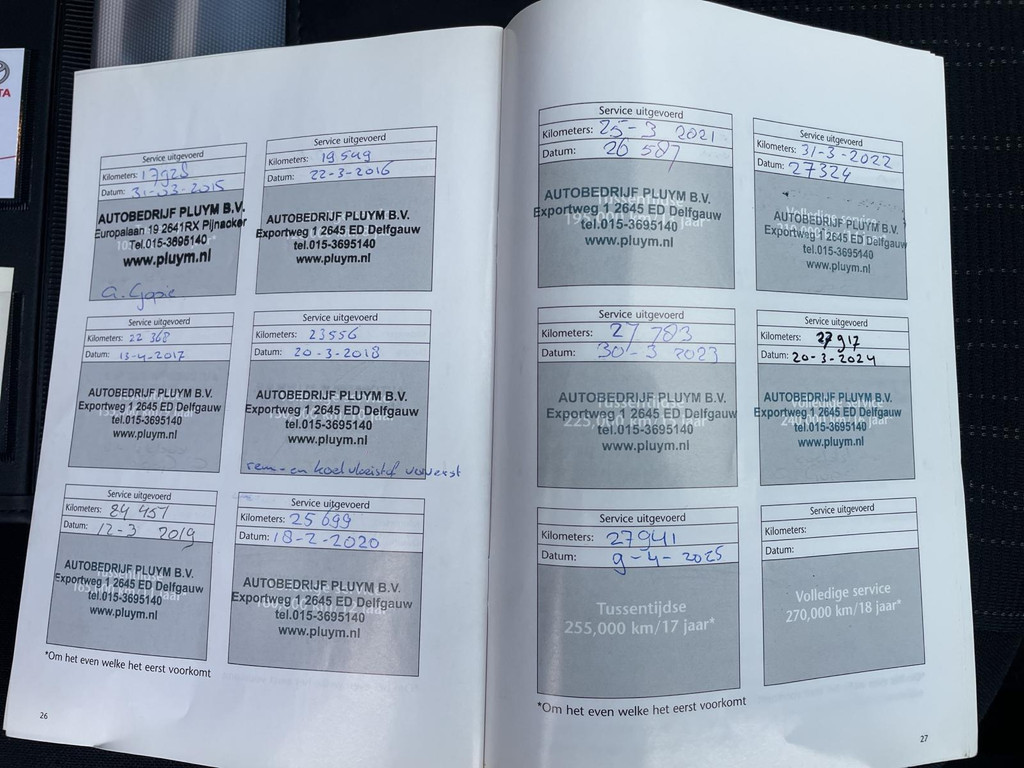 TA
Service uitgevoerd
Kilometers: 17928
Datum: 31-03-2015
AUTOBEDRIJF PLUYM B.V.
Europalaan 19 2641RX Pijnacker
Tel.015-3695140
www.pluym.nl
Service uitgevoerd
Kilometers: 19549
Datum: 22-3-2016
AUTOBEDRIJF PLUYM B.V.
Exportweg 1 2645 ED Delfgauw
tel.015-3695140
www.pluym.nl
Service uitgevoerd
Kilometers: 22 368
Datum: 13-4-2017
AUTOBEDRIJF PLUYM B.V.
Exportweg 1 2645 ED Delfgauw
tel.015-3695140
www.pluym.nl
Service uitgevoerd
Kilometers: 23556
Datum: 20-3-2018
AUTOBEDRIJF PLUYM B.V.
Exportweg 1 2645 ED Delfgauw
tel.015-3695140
www.pluym.nl
rem- en koelvloeistof ververst
Service uitgevoerd
Kilometers: 24 451
Datum: 12-3 2019
AUTOBEDRIJF PLUYM B.V.
Exportweg 1 2645 ED Delfgauw
tel.015-3695140
www.pluym.nl
Service uitgevoerd
Kilometers: 25699
Datum: 18-2-2020
AUTOBEDRIJF PLUYM B.V.
Exportweg 1 2645 ED Delfgauw
tel.015-3695140
www.pluym.nl
*Om het even welke het eerst voorkomt
26
Service uitgevoerd
Kilometers: 25-3 2021
Datum: 26 587
AUTOBEDRIJF PLUYM B.V.
Exportweg 1 2645 ED Delfgauw
tel.015-3695140
www.pluym.nl
Service uitgevoerd
Kilometers: 31-3-2022
Datum: 27324
Volledige service
AUTOBEDRIJF PLUYM B.V.
Exportweg 1 2645 ED Delfgauw
tel.015-3695140
www.pluym.nl
Service uitgevoerd
Kilometers: 27 783
Datum: 30-3 2023
AUTOBEDRIJF PLUYM B.V.
Tussentijdse
Exportweg 1 2645 ED Delfgauw
tel.015-3695140
www.pluym.nl
Service uitgevoerd
Kilometers: 27 917
Datum: 20-3-2024
Volledige service
AUTOBEDRIJF PLUYM B.V.
Exportweg 1 2645 ED Delfgauw
tel.015-3695140
www.pluym.nl
Service uitgevoerd
Kilometers: 27941
Datum: 9-4-2025
Tussentijdse
255,000 km/17 jaar*
Service uitgevoerd
Kilometers:
Datum:
Volledige service
270,000 km/18 jaar*
*Om het even welke het eerst voorkomt
27